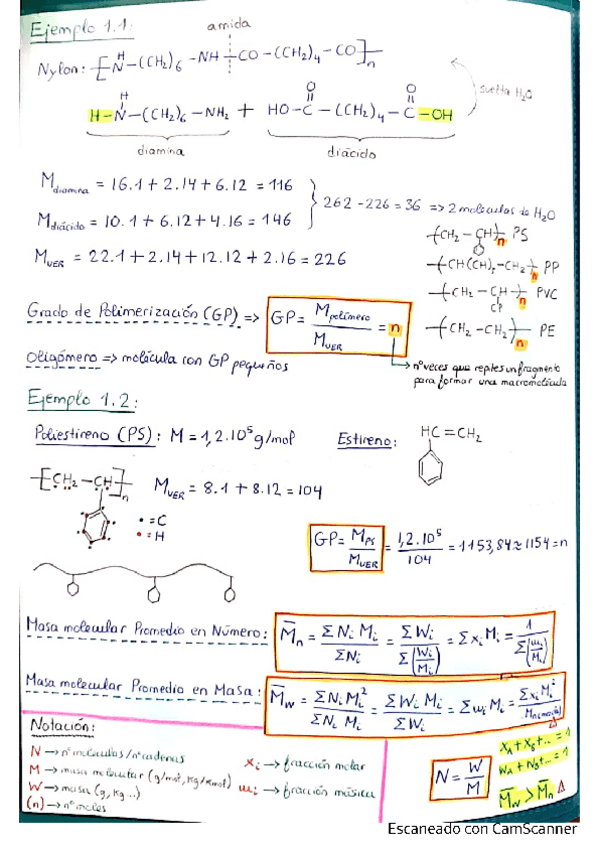 Ejemplo 1.1:
amida
Nylon: -[-N-(CH₂)₆ -NH-CO-(CH₂)₄-CO]-n
H
suelta H₂O
H-N-(CH₂)₆-NH₂ + HO-C-(CH₂)₄-C-OH
H O O
diamina diácido
M diamina = 16.1 + 2.14 + 6.12 = 116
M diácido = 10.1 + 6.12 + 4.16 = 146
262 - 226 = 36 => 2 moleculas de H₂O
M UER = 22.1 + 2.14 + 12.12 + 2.16 = 226
-(CH₂-CH)-n PS
-(CH(CH)₃-CH₂)-n PP
-(CH₂-CH)-n PVC
Cl
-(CH₂-CH₂)-n PE
Grado de Polimerización (GP) => GP = M polímero / M UER = n
nº veces que repites un fragmento
para formar una macromolécula
Oligómero => molécula con GP pequeños
Ejemplo 1.2:
Poliestireno (PS): M = 1,2.10⁵ g/mol Estireno: HC=CH₂
-[-CH₂-CH-]-n M UER = 8.1 + 8.12 = 104
• = C
• = H
GP = M PS / M UER = 1,2.10⁵ / 104 = 1153,84 ≈ 1154 = n
Masa molecular Promedio en Número: M̄n = ΣNi Mi / ΣNi = ΣWi / Σ(Wi/Mi) = Σxi Mi = 1 / Σ(wi/Mi)
Masa molecular Promedio en Masa: M̄w = ΣNi Mi² / ΣNi Mi = ΣWi Mi / ΣWi = Σwi Mi = Σxi Mi² /
Notación:
N → nº moléculas/nº cadenas
M → masa molecular (g/mol, Kg/Kmol)
W → masa (g, Kg...)
(n) → nº moles
xi → fracción molar
wi → fracción másica
N = W / M
XA + XB + ... = 1
WA + WB + ... = 1
M̄w > M̄n
Escaneado con CamScanner